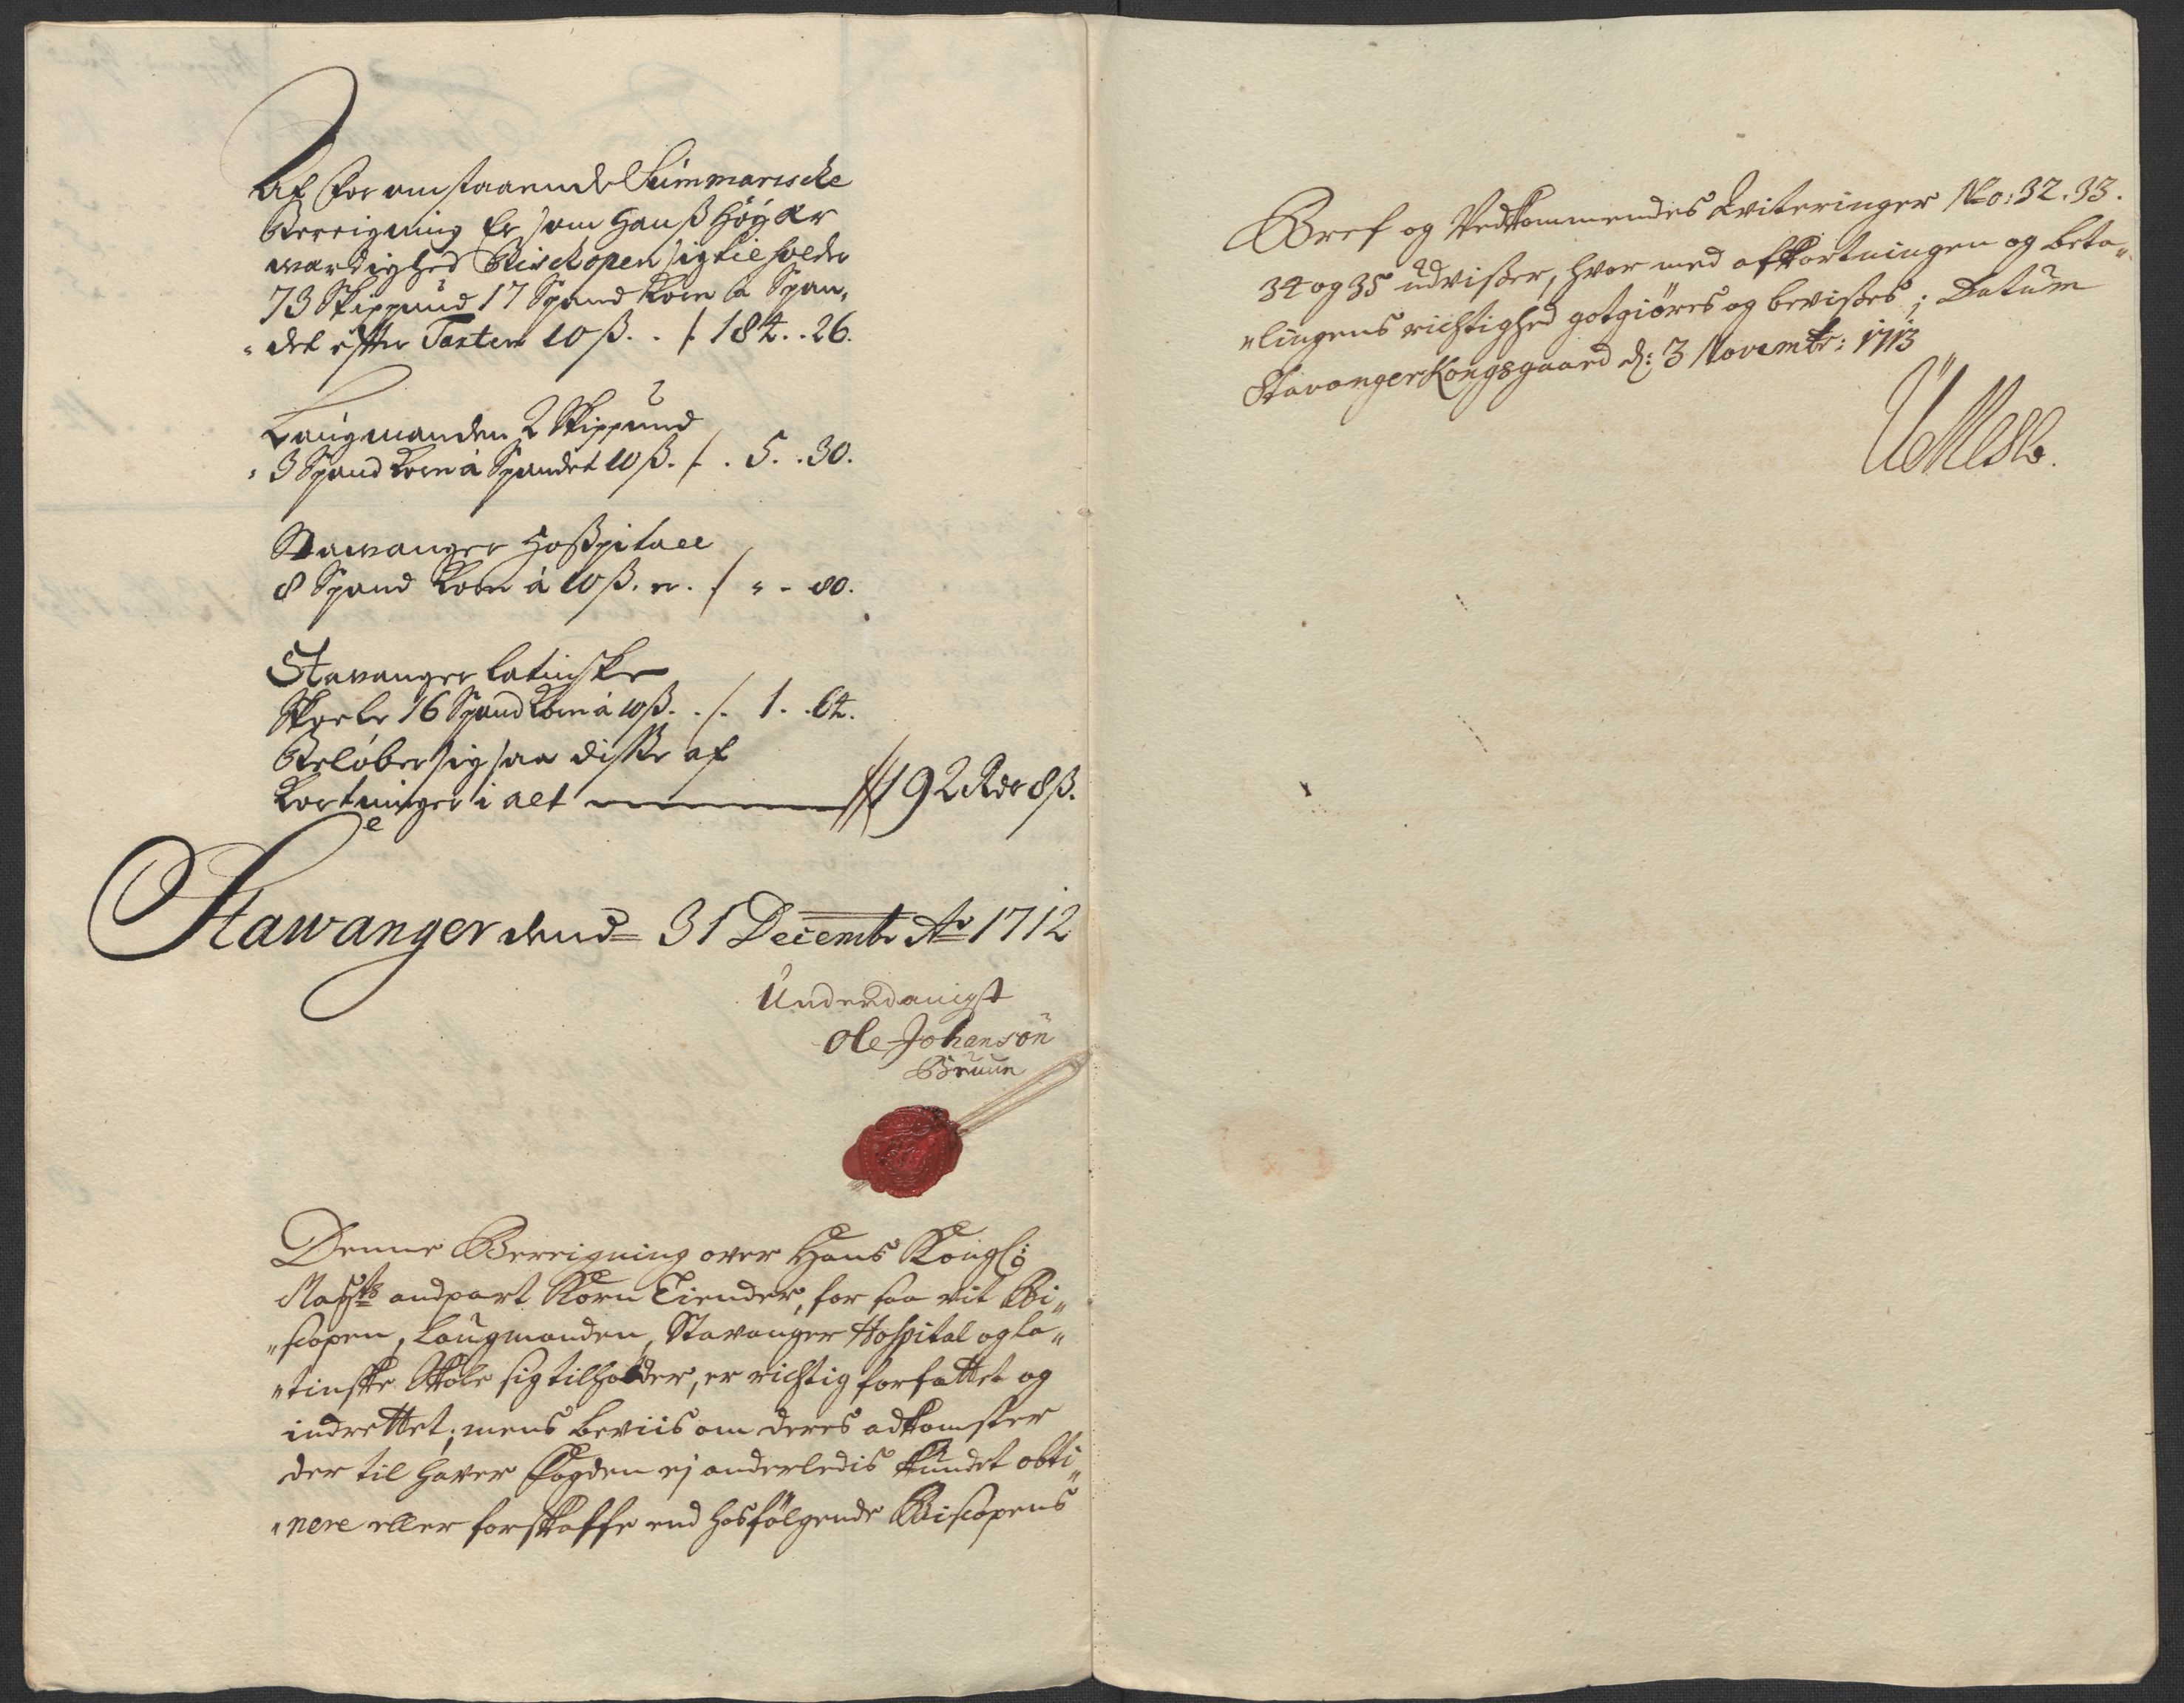 Af For om staaende Summariscke
Bereigning Er som Hanß Høy Ær
wærdighed Bisckopen sig til holder
73 Skippund 17 Spand Korn a Span„
„det efter Taxten 10 ß. . /. 184. . 26.
Laugmanden 2 Skippund
3 Spand Korn à Spandet 10 ß. /. . 5. . 30.
Stawanger Hoßpitall
8 Spand Korn à 10 ß. er. / „ - 80.
Stavanger Latinske
Skoele 16 Spand Korn à 10 ß. . /. 1. . 64.
Beløber sig saa diße af
Kortninger i alt 192 Rdr 8 ß.
Stawanger dend 31 Decembr Ao 1712
Underdanigst
Ole Johansøn
Bruun
Denne Bereigning over Hans Kongl:
Mayts andpart Korn Tiender, for saa vit Bi„
„scopen, Laugmanden, Stavanger Hospital og La„
„tinske Skole sig tilholder, er richtig forfattet og
indrettet; mens beviis om deres adkomster
der til haver Fogden ej anderledis kundet obti„
„nere eller forskaffe end hosfølgende Biscopens
Bref og Vedkommendes Qviteringer No: 32. 33.
34 og 35 udvißer, hvor med afkortningen og beta„
„lingens richtighed gotgiøres og bevißes; Datum
Stavanger Kongsgaard d: 3 Novembr: 1713